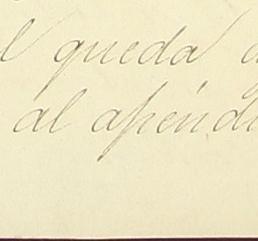 l queda a
al apéndi